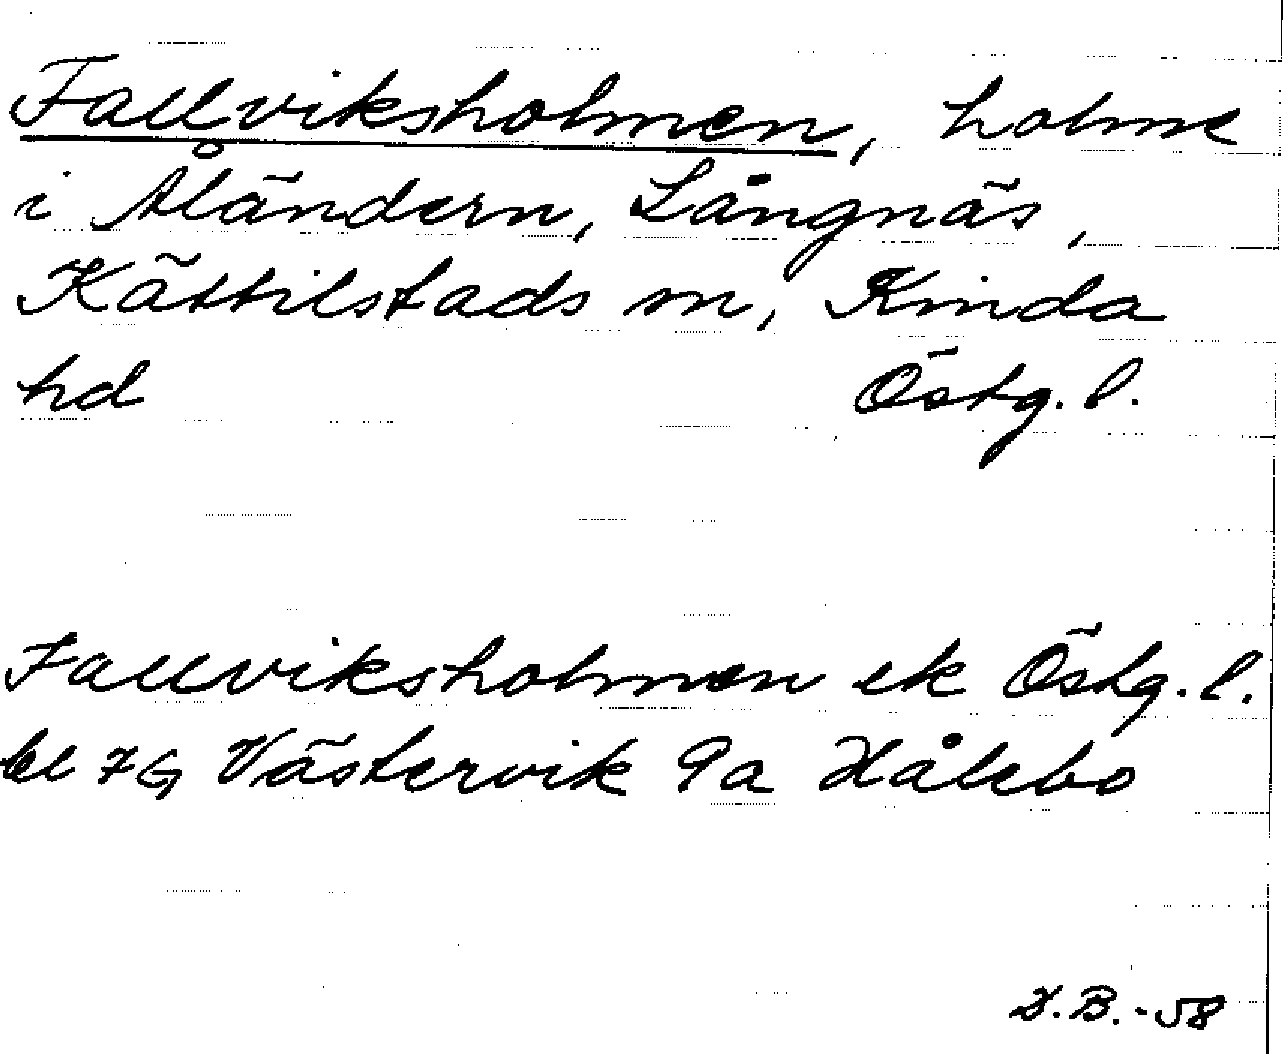 Fallviksholmen, holme
i Åländern, Långnäs,
Kättilstads sn, Kinda
hd Östg. l.
Fallviksholmen ek Östg. l.
bl 7G Västervik 9a Hålebo
D.B.-58